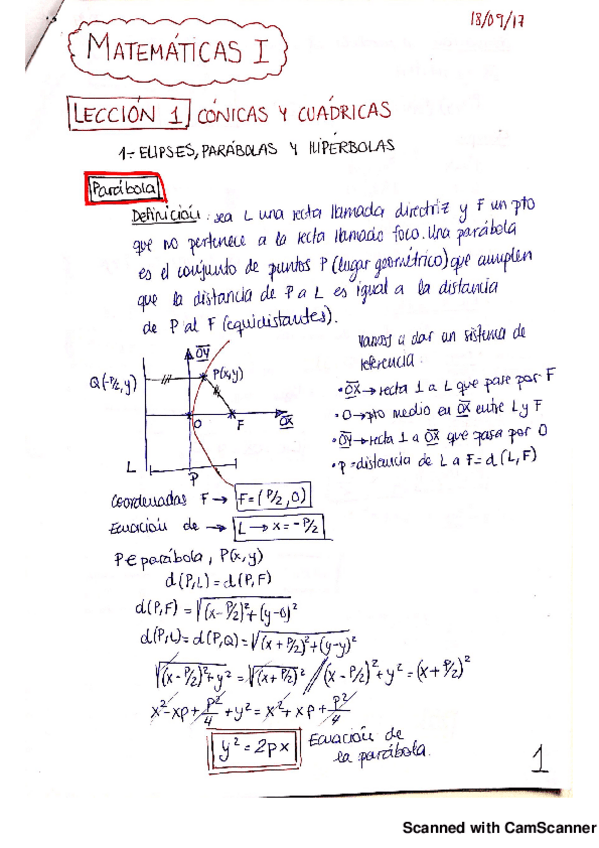 18/09/17
MATEMÁTICAS I
LECCIÓN 1 CÓNICAS Y CUÁDRICAS
1- ELIPSES, PARÁBOLAS Y HIPÉRBOLAS
Parábola
Definición: sea L una recta llamada directriz y F un pto
que no pertenece a la recta llamado foco. Una parábola
es el conjunto de puntos P (lugar geométrico) que cumplen
que la distancia de P a L es igual a la distancia
de P al F (equidistantes).
Vamos a dar un sistema de
referencia:
• OX → recta ⊥ a L que pase por F
• O → pto medio en OX entre L y F
• OY → recta ⊥ a OX que pasa por O
• p = distancia de L a F = d(L,F)
OY
Q(-P/2,y)
P(x,y)
O
F
OX
L
P
Coordenadas F → F=(P/2,0)
Ecuación de → L → x=-P/2
P∈parábola, P(x,y)
d(P,L)=d(P,F)
d(P,F)=√(x-P/2)²+(y-0)²
d(P,L)=d(P,Q)=√(x+P/2)²+(y-y)²
√(x-P/2)²+y² = √(x+P/2)² // (x-P/2)²+y²=(x+P/2)²
x²-xp+p²/4+y²=x²+xp+p²/4
y²=2px Ecuación de
la parábola.
1
Scanned with CamScanner